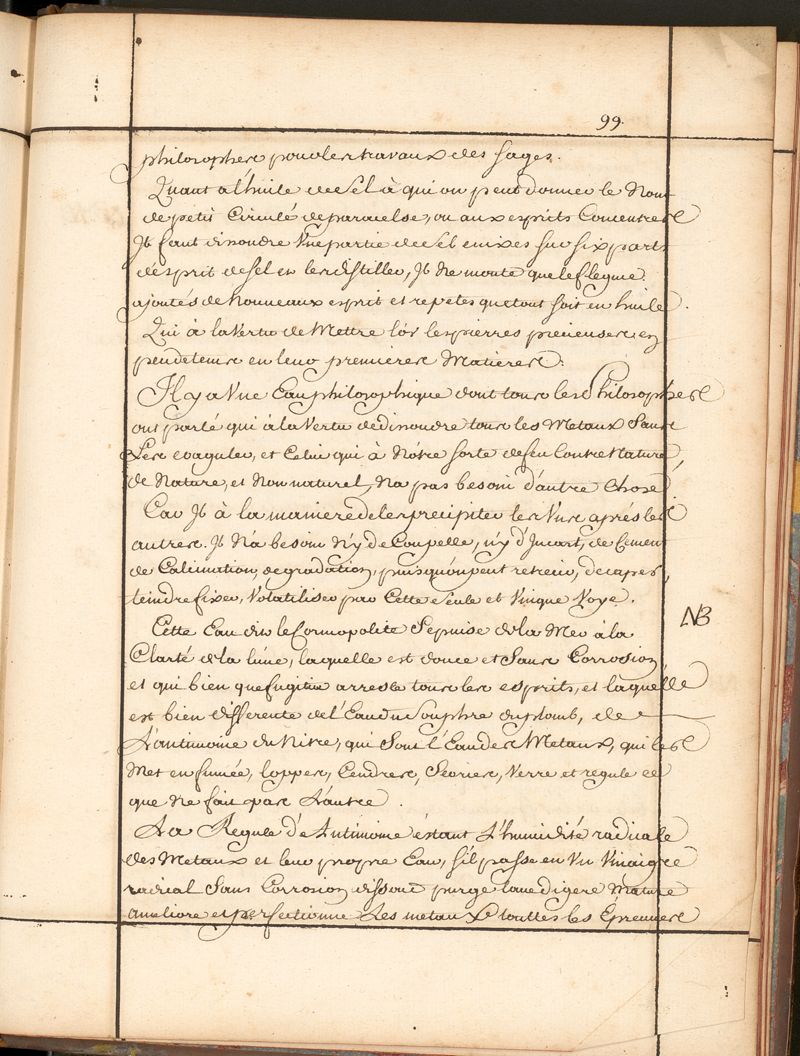 99.
philosophes pour les travaux des sages.
Quant a l'huile de sel à qui on peut donner le Nom
de petit Circulé de paracelse, ou aux esprits Concentres
Jl faut dissoudre Une partie de sel enixes sur six parts
d'esprit de sel et les distiller, Jl Ne monte que le flegme.
ajoutés de Nouveaux esprit et repetes que tout soit en huile.
Qui à la Vertu de Mettre l'or les pierres precieuses en
peu de tems en leur premieres Matieres.
Il y a Une Eau philosophique dont tous les Philosophes
ont parlé qui à la Vertu de dissoudre tous les Metaux Sans
Les coaguler, et Celui qui à Nôtre sorte de feu Contre Nature,
de Nature, et Non naturel, Na pas besoin d'autre Chose.
Car Jl à la maniere de les precipiter les Uns aprés les
autres. Jl N'a besoin N'y de Coupelle, n'y d'Jncart, de Cement
de Calcination, degradation, puisqu'on peut retreir, decaper,
teindre fixer, Volatiliser par Cette Seule et Unique Voye.
NB
Cette Eau dit le Cosmopolite Sepuise de la Mer à la
Clarté de la lune, laquelle est douce et Sans Corrosion
et qui bien que fugitive arreste tous les esprits, et laquelle
est bien differente de l'Eau du Souphre du plomb, de
L'antimoine du Nitre, qui Sont l'Eau des Metaux, qui les
Met en fumée, loppes, Cendres, Scories, Verre et regule ce
que Ne fait pas L'autre.
La Regule d'Antimoine éstant L'humidité radicale
des Metaux et leur propre Eau, s'il passe en Un Vinaigre
radical Sans Corrosion dissout purge lave digere Mature
ameliore et perfectionne Les metaux touttes les Epreuves